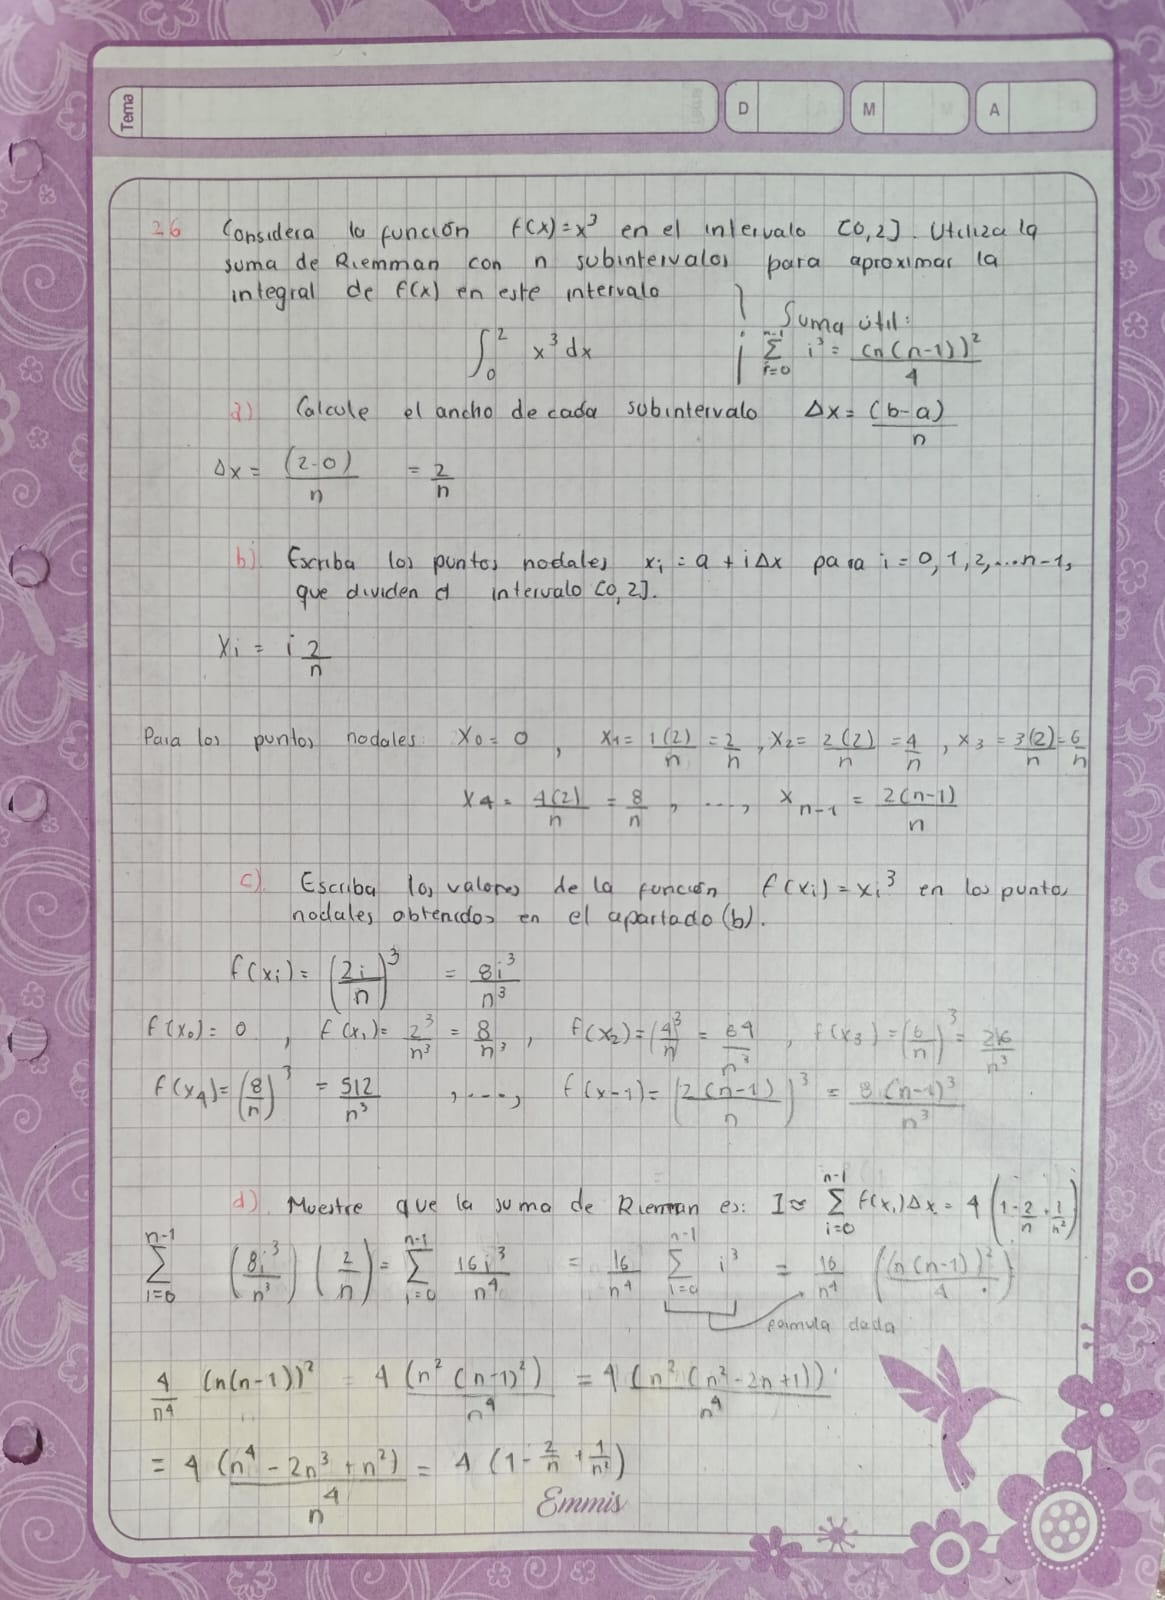 Tema D M A
26 Considera la función f(x)=x³ en el intervalo [0,2]. Utiliza la
suma de Riemman con n subintervalos para aproximar la
integral de f(x) en este intervalo
Suma útil:
∫₀² x³dx
Σ_{i=0}^{n-1} i³ = (n(n-1))²/4
a) Calcule el ancho de cada subintervalo Δx = (b-a)/n
Δx = (2-0)/n = 2/n
b) Escriba los puntos nodales xᵢ = a + iΔx para i = 0, 1, 2, ... n-1,
que dividen el intervalo [0,2].
Xᵢ = i 2/n
Para los puntos nodales: X₀ = 0 , X₁ = 1(2)/n = 2/n , X₂ = 2(2)/n = 4/n , X₃ = 3(2)/n = 6/n
X₄ = 4(2)/n = 8/n , ..., Xₙ₋₁ = 2(n-1)/n
c) Escriba los valores de la función f(xᵢ) = xᵢ³ en los puntos
nodales obtenidos en el apartado (b).
f(xᵢ) = (2i/n)³ = 8i³/n³
f(x₀) = 0 , f(x₁) = 2³/n³ = 8/n³ , f(x₂) = (4/n)³ = 64/n³ , f(x₃) = (6/n)³ = 216/n³
f(x₄) = (8/n)³ = 512/n³ , ..., f(x-1) = (2(n-1)/n)³ = 8(n-1)³/n³
d) Muestre que la suma de Rieman es: I≈ Σ_{i=0}^{n-1} f(xᵢ)Δx = 4(1 - 2/n + 1/n²)
Σ_{i=0}^{n-1} (8i³/n³)(2/n) = Σ_{i=0}^{n-1} 16i³/n⁴ = 16/n⁴ Σ_{i=0}^{n-1} i³ = 16/n⁴ ((n(n-1))²/4)
fórmula dada
4/n⁴ (n(n-1))² = 4(n²(n-1)²)/n⁴ = 4(n²(n²-2n+1))/n⁴
= 4(n⁴ - 2n³ + n²)/n⁴ = 4(1 - 2/n + 1/n²)
Emmis